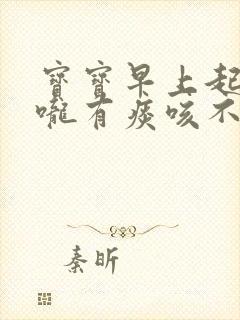 寶寶早上起
嚨有痰咳不
秦昕